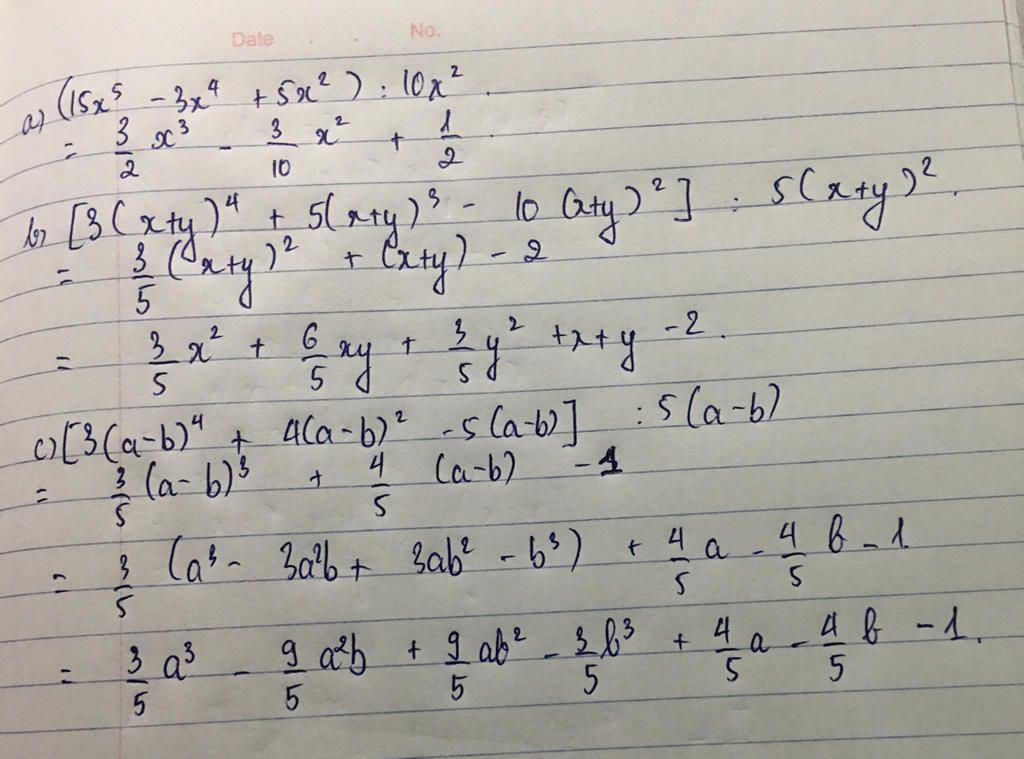 Date . . No.
a) (15x⁵ - 3x⁴ + 5x²) : 10x².
= 3/2 x³ - 3/10 x² + 1/2.
b) [3(x+y)⁴ + 5(x+y)³ - 10(x+y)²] : 5(x+y)².
= 3/5 (x+y)² + (x+y) - 2
= 3/5 x² + 6/5 xy + 3/5 y² + x + y - 2.
c) [3(a-b)⁴ + 4(a-b)² - 5(a-b)] : 5(a-b)
= 3/5 (a-b)³ + 4/5 (a-b) - 1
= 3/5 (a³ - 3a²b + 3ab² - b³) + 4/5 a - 4/5 b - 1
= 3/5 a³ - 9/5 a²b + 9/5 ab² - 3/5 b³ + 4/5 a - 4/5 b - 1.